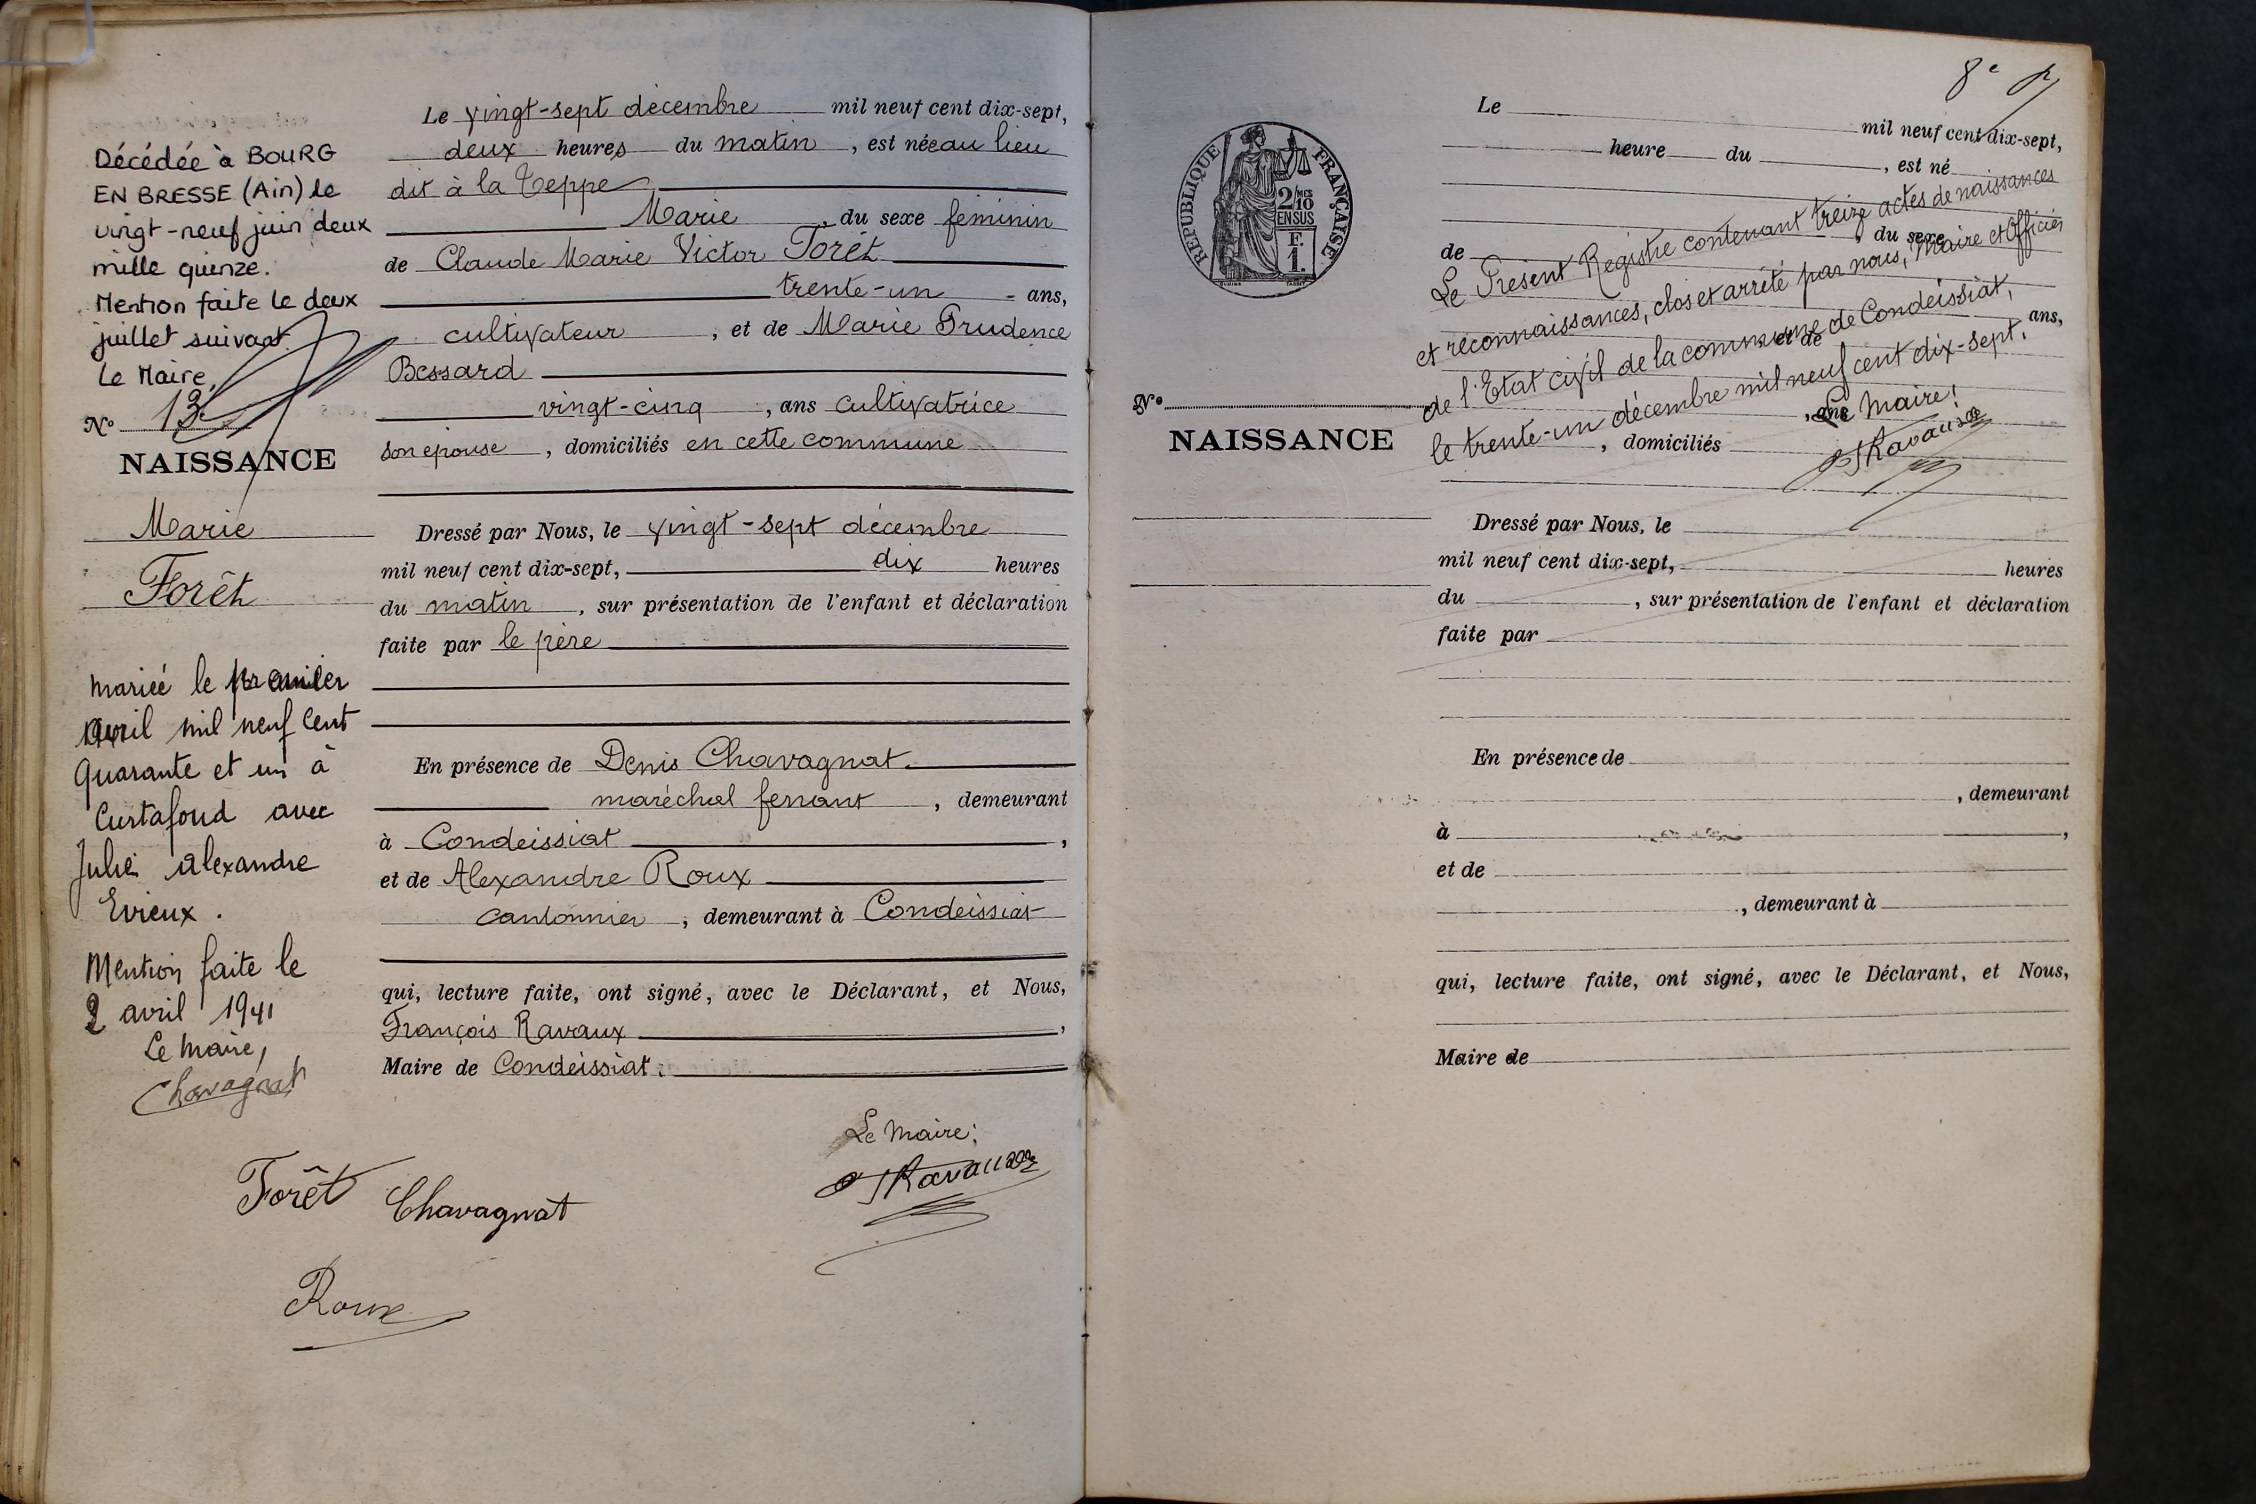 Décédée à BOURG
EN BRESSE (Ain) le
vingt-neuf juin deux
mille quinze.
Mention faite le deux
juillet suivant.
Le Maire,
N° 13
NAISSANCE
Marie
Forêt
mariée le premier
avril mil neuf cent
quarante et un à
Curtafond avec
Alexandre
Evieux.
Mention faite le
2 avril 1941
Le Maire,
Chavagnat
Le vingt-sept décembre mil neuf cent dix-sept,
deux heures du matin, est née au lieu
dit à la Teppe
Marie, du sexe féminin
de Claude Marie Victor Forêt
trente-un ans,
cultivateur, et de Marie Prudence
Bessard
vingt-cinq, ans cultivatrice
son épouse, domiciliés en cette commune
Dressé par Nous, le vingt-sept décembre
mil neuf cent dix-sept, dix heures
du matin, sur présentation de l'enfant et déclaration
faite par le père
En présence de Denis Chavagnat
maréchal ferrant, demeurant
à Condeissiat,
et de Alexandre Roux
cantonnier, demeurant à Condeissiat
qui, lecture faite, ont signé, avec le Déclarant, et Nous,
François Ravaux,
Maire de Condeissiat.
Le Maire:
Ravaux
Forêt Chavagnat
Roux
8e
RÉPUBLIQUE FRANÇAISE
2/10
EN SUS
F.
1.
N°
NAISSANCE
Le mil neuf cent dix-sept,
heure du , est né
du sexe
de
ans,
et de
, ans
, domiciliés
Le Présent Registre contenant treize actes de naissances
et réconnaissances, clos et arrêté par nous, Maire et Officier
de l'Etat civil de la commune de Condeissiat,
le trente-un décembre mil neuf cent dix-sept.
Le Maire:
Ravaux
Dressé par Nous, le
mil neuf cent dix-sept, heures
du , sur présentation de l'enfant et déclaration
faite par
En présence de
, demeurant
à ,
et de
, demeurant à
qui, lecture faite, ont signé, avec le Déclarant, et Nous,
Maire de